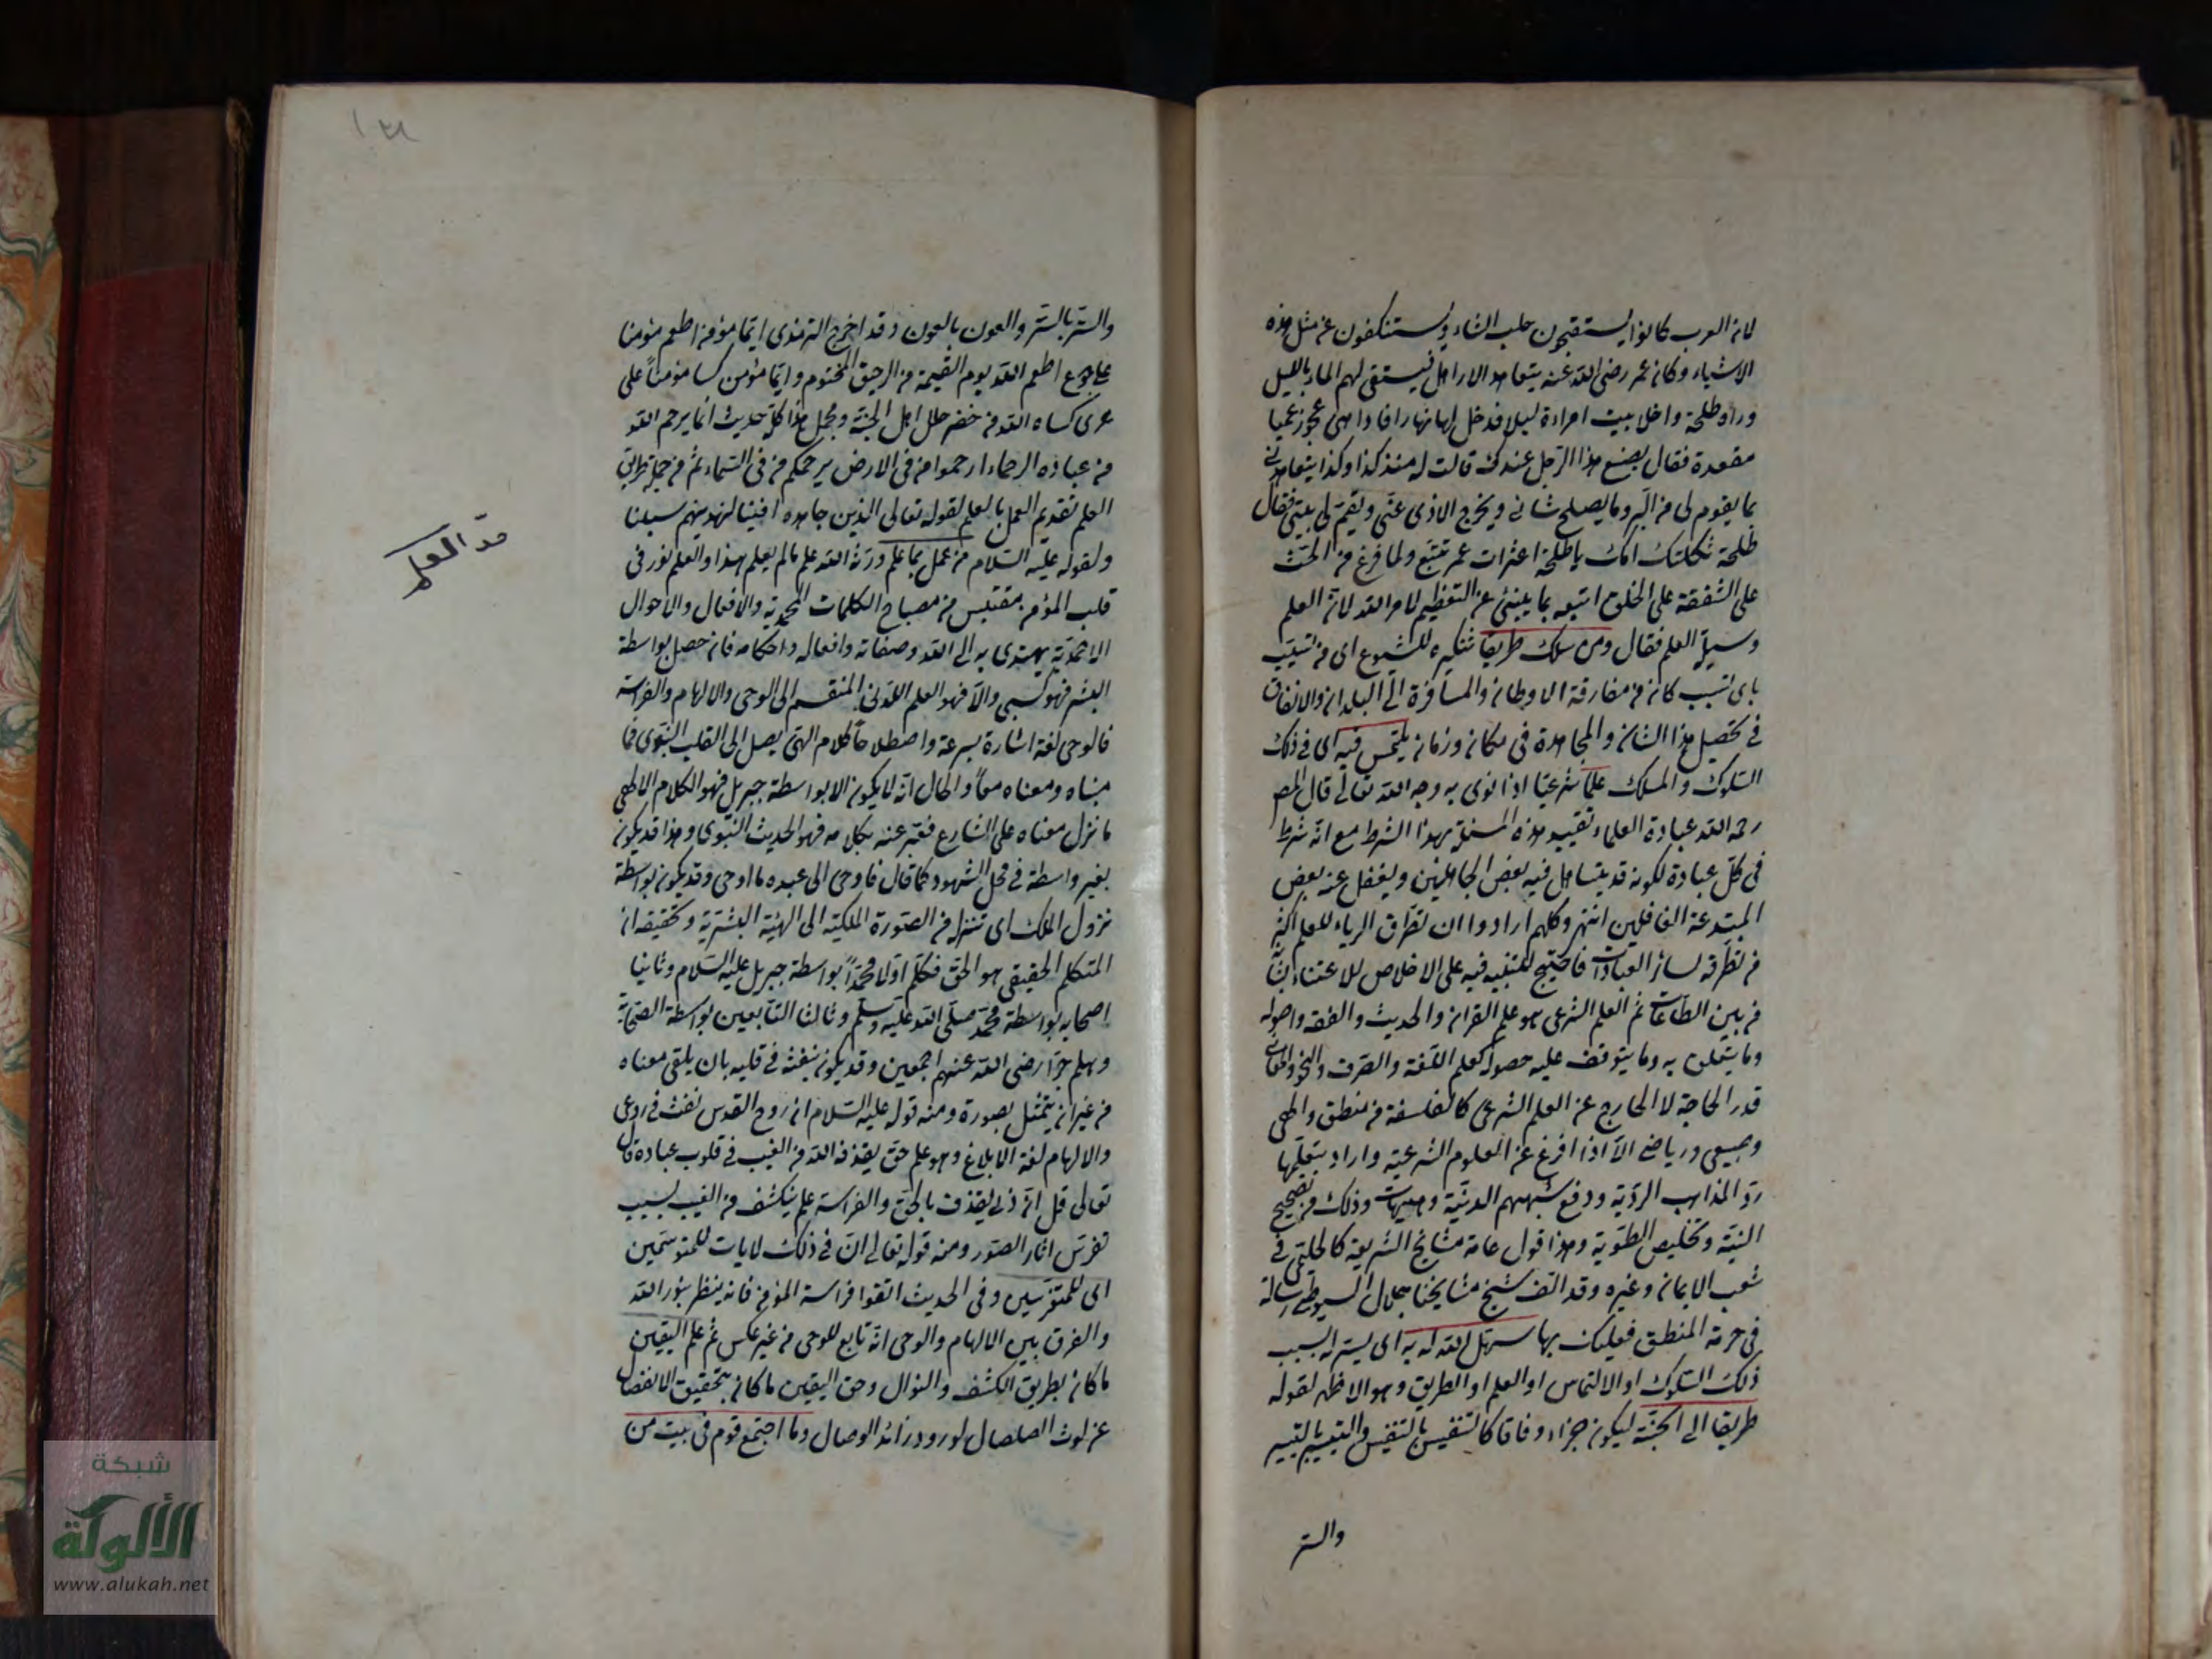 لان العرب كانوا يستقبحون حلب النساء ويستنكفون عن مثل هذه
الاشياء وكان عمر رضى الله عنه يتعاهد الارامل فيستقى لهم الماء بالليل
وراه طلحة داخلا بيت امراءة ليلا فدخل لها نهارا فاذا هى عجوز عميا
مقعدة فقال يصنع هذا الرجل عندك قالت له منذ كذا وكذا يتعاهدنى
بما يقوم لى من البر وما يصلح شانى ويخرج الاذى عنى ويقم لى بيتى فقال
طلحة ثكلتك امك يا طلحة اعثرات عمر تتبع ولما فرغ من الحث
على الشفقة على الخلق اتبعه بما ينبئ عن التعظيم لامر الله لانه العلم
وسيلة العلم فقال ومن سلك طريقا تنكيره للشيوع اى من تسبب
باى سبب كان من مفارقة الاوطان والمسافرة الى البلدان والانفاق
فى تحصيل هذا الشان والمجاهدة فى مكان وزمان يلتمس فيه اى فى ذلك
السلوك والمسلك علما شرعيا اذا نوى به وجه الله تعالى قال المص
رحمه الله عبادة العلماء تقييد هذه المسئلة بهذا الشرط مع انه شرط
فى كل عبادة لكونه قد يتساهل فيه بعض الجاهلين ويغفل عنه بعض
المبتدعة الغافلين انتهى وكلهم ارادوا ان تطرق الرياء للعلم اكثر
من تطرقه لسائر العبادات فاحتيج للتنبيه فيه على الاخلاص للاعتناء بشانه
من بين الطاعات ثم العلم الشرعى هو علم القران والحديث والفقه واصوله
وما يتعلق به وما يتوقف عليه حصوله كعلم اللغة والصرف والنحو والمعانى
قدر الحاجة لا الخارج عن العلم الشرعى كالفلسفة من منطق والهى
وطبيعى ورياضى الا اذا افرغ عن العلوم الشرعية واراد بتعلمها
رد المذاهب الردية ودفع شبههم الدنية وهيهات وذلك من تصحيح
النية وتخليص الطوية وهذا قول عامة مشايخ الشريعة كالحليمى فى
شعب الايمان وغيره وقد الف شيخ مشايخنا جلال السيوطى رسالة
فى حرمة المنطق فعليك بها سهل الله له به اى يسر له بسبب
ذلك السلوك او الالتماس او العلم او الطريق وهو الاظهر لقوله
طريقا الى الجنة ليكون جزاء وفاقا كالتنفيس بالتنفيس والتيسير بالتيسير
والستر
والستر بالستر والعون بالعون وقد اخرج الترمذى ايما مؤمن اطعم مؤمنا
على جوع اطعمه الله يوم القيمة من الرحيق المختوم وايما مؤمن كسا مؤمنا على
عرى كساه الله من خضر حلل اهل الجنة ومجمل هذا كله حديث انما يرحم الله
من عباده الرحماء ارحموا من فى الارض يرحمكم من فى السماء ثم من جملة طرائق
العلم تقديم العمل بالعلم لقوله تعالى الذين جاهدوا فينا لنهدينهم سبلنا
ولقوله عليه السلام من عمل بما علم ورثه الله علم مالم يعلم هذا والعلم نور فى
قلب المؤمن مقتبس من مصباح الكلمات المحمدية والافعال والاحوال
الاحمدية يهتدى به الى الله وصفاته وافعاله واحكامه فان حصل بواسطة
البشر فهو كسبى والا فهو العلم اللدنى المنقسم الى الوحى والالهام والفراسة
فالوحى لغة اشارة بسرعة واصطلاحا كلام الهى يصل الى القلب النبوى فما
مبناه ومعناه معا والحال انه لا يكون الا بواسطة جبريل فهو الكلام الالهى
ما نزل معناه على الشارع فعبر عنه بكلامه فهو الحديث النبوى وهذا قد يكون
بغير واسطة فى محل الشهود كما قال فاوحى الى عبده ما اوحى وقد يكون بواسطة
نزول الملك اى تنزله من الصورة الملكية الى الهيئة البشرية وتحقيقه ان
المتكلم الحقيقى هو الحق فكلم اولا محمدا بواسطة جبريل عليه السلام وثانيا
اصحابه بواسطة محمد صلى الله عليه وسلم وثالثا التابعين بواسطة الصحابة
وهلم جرا رضى الله عنهم اجمعين وقد يكون بنفثه فى قلبه بان يلقى معناه
من غير ان يتمثل بصورة ومنه قوله عليه السلام ان روح القدس نفث فى روعى
والالهام لغة الابلاغ وهو علم حق يقذفه الله من الغيب فى قلوب عباده قال
تعالى قل ان ربى يقذف بالحق والفراسة علم ينكشف من الغيب بسبب
تفرس اثار الصور ومنه قوله تعالى ان فى ذلك لايات للمتوسمين
اى للمتفرسين وفى الحديث اتقوا فراسة المؤمن فانه ينظر بنور الله
والفرق بين الالهام والوحى انه تابع للوحى من غير عكس ثم علم اليقين
ما كان بطريق الكشف والنوال وحق اليقين ما كان بتحقيق الانفصال
عن لوث الصلصال لورود رائد الوصال وما اجتمع قوم فى بيت من
العلم
شبكة
الألوكة
www.alukah.net